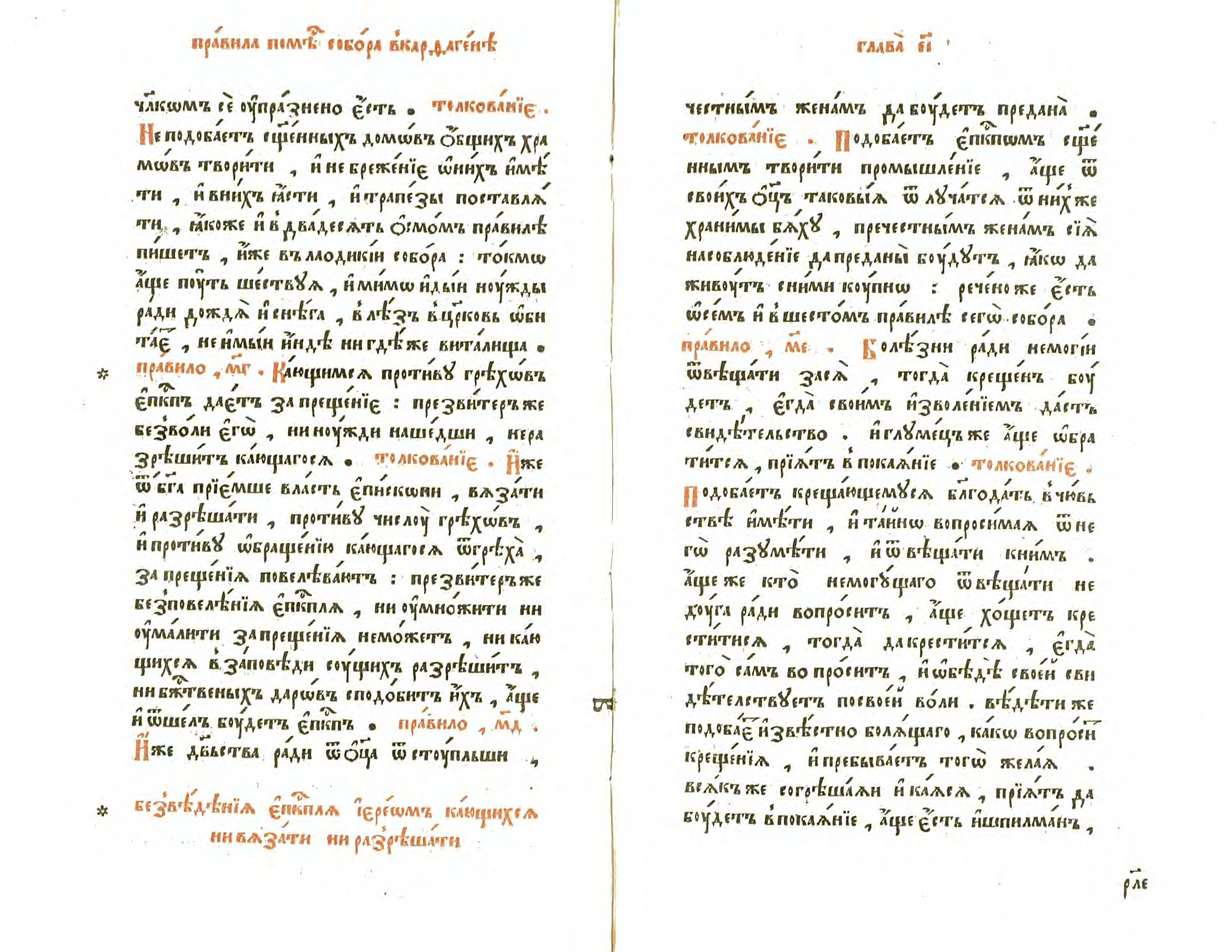 пра́вила помѣ́ст собо́ра вкарѳаге́нѣ
чл҃комъ сѐ ᲂупра́знено є҆́сть . толкова́нїе .
Не подоба́етъ сщ҃е́нныхъ домѡ́въ ѻ҆́бщихъ хра
мѡ́въ твори́ти , и҆ небреже́нїе ѡ҆ни́хъ и҆мѣ́
ти , и҆ вни́хъ ꙗ҆́сти , и҆ трапе́зы поставлѧ́
ти , ꙗ҆́коже и҆ в два́десѧть ѻ҆смо́мъ пра́вилѣ
пи́шетъ , и҆́же въ лаодики́и собо́ра : то́кмѡ
а҆́ще пᲂу́ть ше́ствуѧ , и҆ ми́мѡ и҆ды́и нᲂу́жды
ради дождѧ̀ и҆ снѣ́га , влѣ́зъ вцр҃ковь ѡ҆би
та́е҆т , не и҆мы́и и҆́ндѣ нигдѣ́же вита́лища .
пра́вило , м҃г . Ка́ющимсѧ проти́ву грѣхѡ́въ
є҆пк҃пъ дае́тъ запреще́нїе : презви́теръ же
безво́ли є҆гѡ̀ , ни нᲂу́жди наше́дши , нера
зрѣши́тъ ка́ющагосѧ . толкова́нїе . И҆́же
ѿ бг҃а прїе́мше вла́сть є҆пи́скопи , вѧза́ти
и҆ разрѣша́ти , проти́ву числᲂу̀ грѣхѡ́въ ,
и҆ проти́ву ѡ҆браще́нїю ка́ющагосѧ ѿгрѣха̀ ,
запреще́нїѧ повелѣва́ютъ : презви́теръ же
безповелѣ́нїѧ є҆пк҃плѧ , ни ᲂу҆мно́жити ни
ᲂу҆ма́лити запреще́нїѧ немо́жетъ , ни ка́ю
щихсѧ в за́повѣди сᲂу́щихъ разрѣши́тъ ,
ни бж҃твеныхъ даро́въ сподо́битъ и҆́хъ , а҆́ще
и҆ ѿше́лъ бᲂу́детъ є҆пк҃пъ . пра́вило , м҃д .
И҆́же дв҃ьства ра́ди ѿ ѻ҆ц҃а̀ ѿстᲂу́пльши ,
* безвѣ́дѣнїѧ є҆пк҃плѧ і҆ере́ѡмъ ка́ющихсѧ
ни вѧза́ти ни разрѣша́ти
глава̀ є҃і
че́стны́мъ жена́мъ да бᲂу́детъ предана̀ .
толкова́нїе . Подоба́етъ є҆пк҃пѡмъ сщ҃е́
ннымъ твори́ти промышле́нїе , а҆́ще ѿ
свои́хъ ѻ҆ц҃ъ таковы́ѧ ѿлуча́тсѧ ѿ ни́хже
храни́мы бѧ́ху , пречестны́мъ жена́мъ сїѧ̀
на соблюде́нїе да пре́даны бᲂу́дутъ , ꙗ҆́кѡ да
живᲂу́тъ сни́ми кᲂу́пнѡ : рече́но же є҆́сть
ѡ҆се́мъ и҆ в шесто́мъ пра́вилѣ сегѡ̀ собо́ра .
пра́вило , м҃е . Болѣ́зни ради немоги́и
ѿвѣща́ти засѧ̀ , тогда̀ креще́нъ бᲂу́
детъ , є҆гда̀ свои́мъ и҆зволе́нїемъ да́стъ
свидѣ́тельство . и҆глуме́цъ же а҆́ще ѡ҆бра
ти́тсѧ , прїѧ́тъ в покаѧ́нїе . толкова́нїе .
Подоба́етъ креща́ющемусѧ бл҃года́ть в чю́вь
ствѣ и҆мѣ́ти , и҆ та́йнѡ вопроси́маѧ ѿне
гѡ̀ разумѣ́ти , и҆ ѿвѣща́ти кни́мъ .
а҆́ще же кто̀ немогу́щаго ѿвѣща́ти не
дᲂу́га ра́ди вопро́ситъ , а҆́ще хо́щетъ кре
сти́тисѧ , тогда̀ да крести́тсѧ , є҆гда̀
того̀ са́мъ вопро́ситъ , и҆ ѡ҆бѣдѣ̀ свое́й сви
дѣ́телствуетъ посвое́й во́ли . вѣ́дѣти же
подоба́е҆т и҆звѣ́стно болѧ́щаго , ка́кѡ вопроси́
креще́нїѧ , и҆ пребыва́етъ тогѡ̀ жела́ѧ .
всѧ́къ же согрѣша́ѧи и҆ ка́ѧсѧ , прїѧ́тъ да
бᲂу́детъ в покаѧ́нїе , а҆́ще є҆́сть и҆шпилма́нъ ,
рл҃е